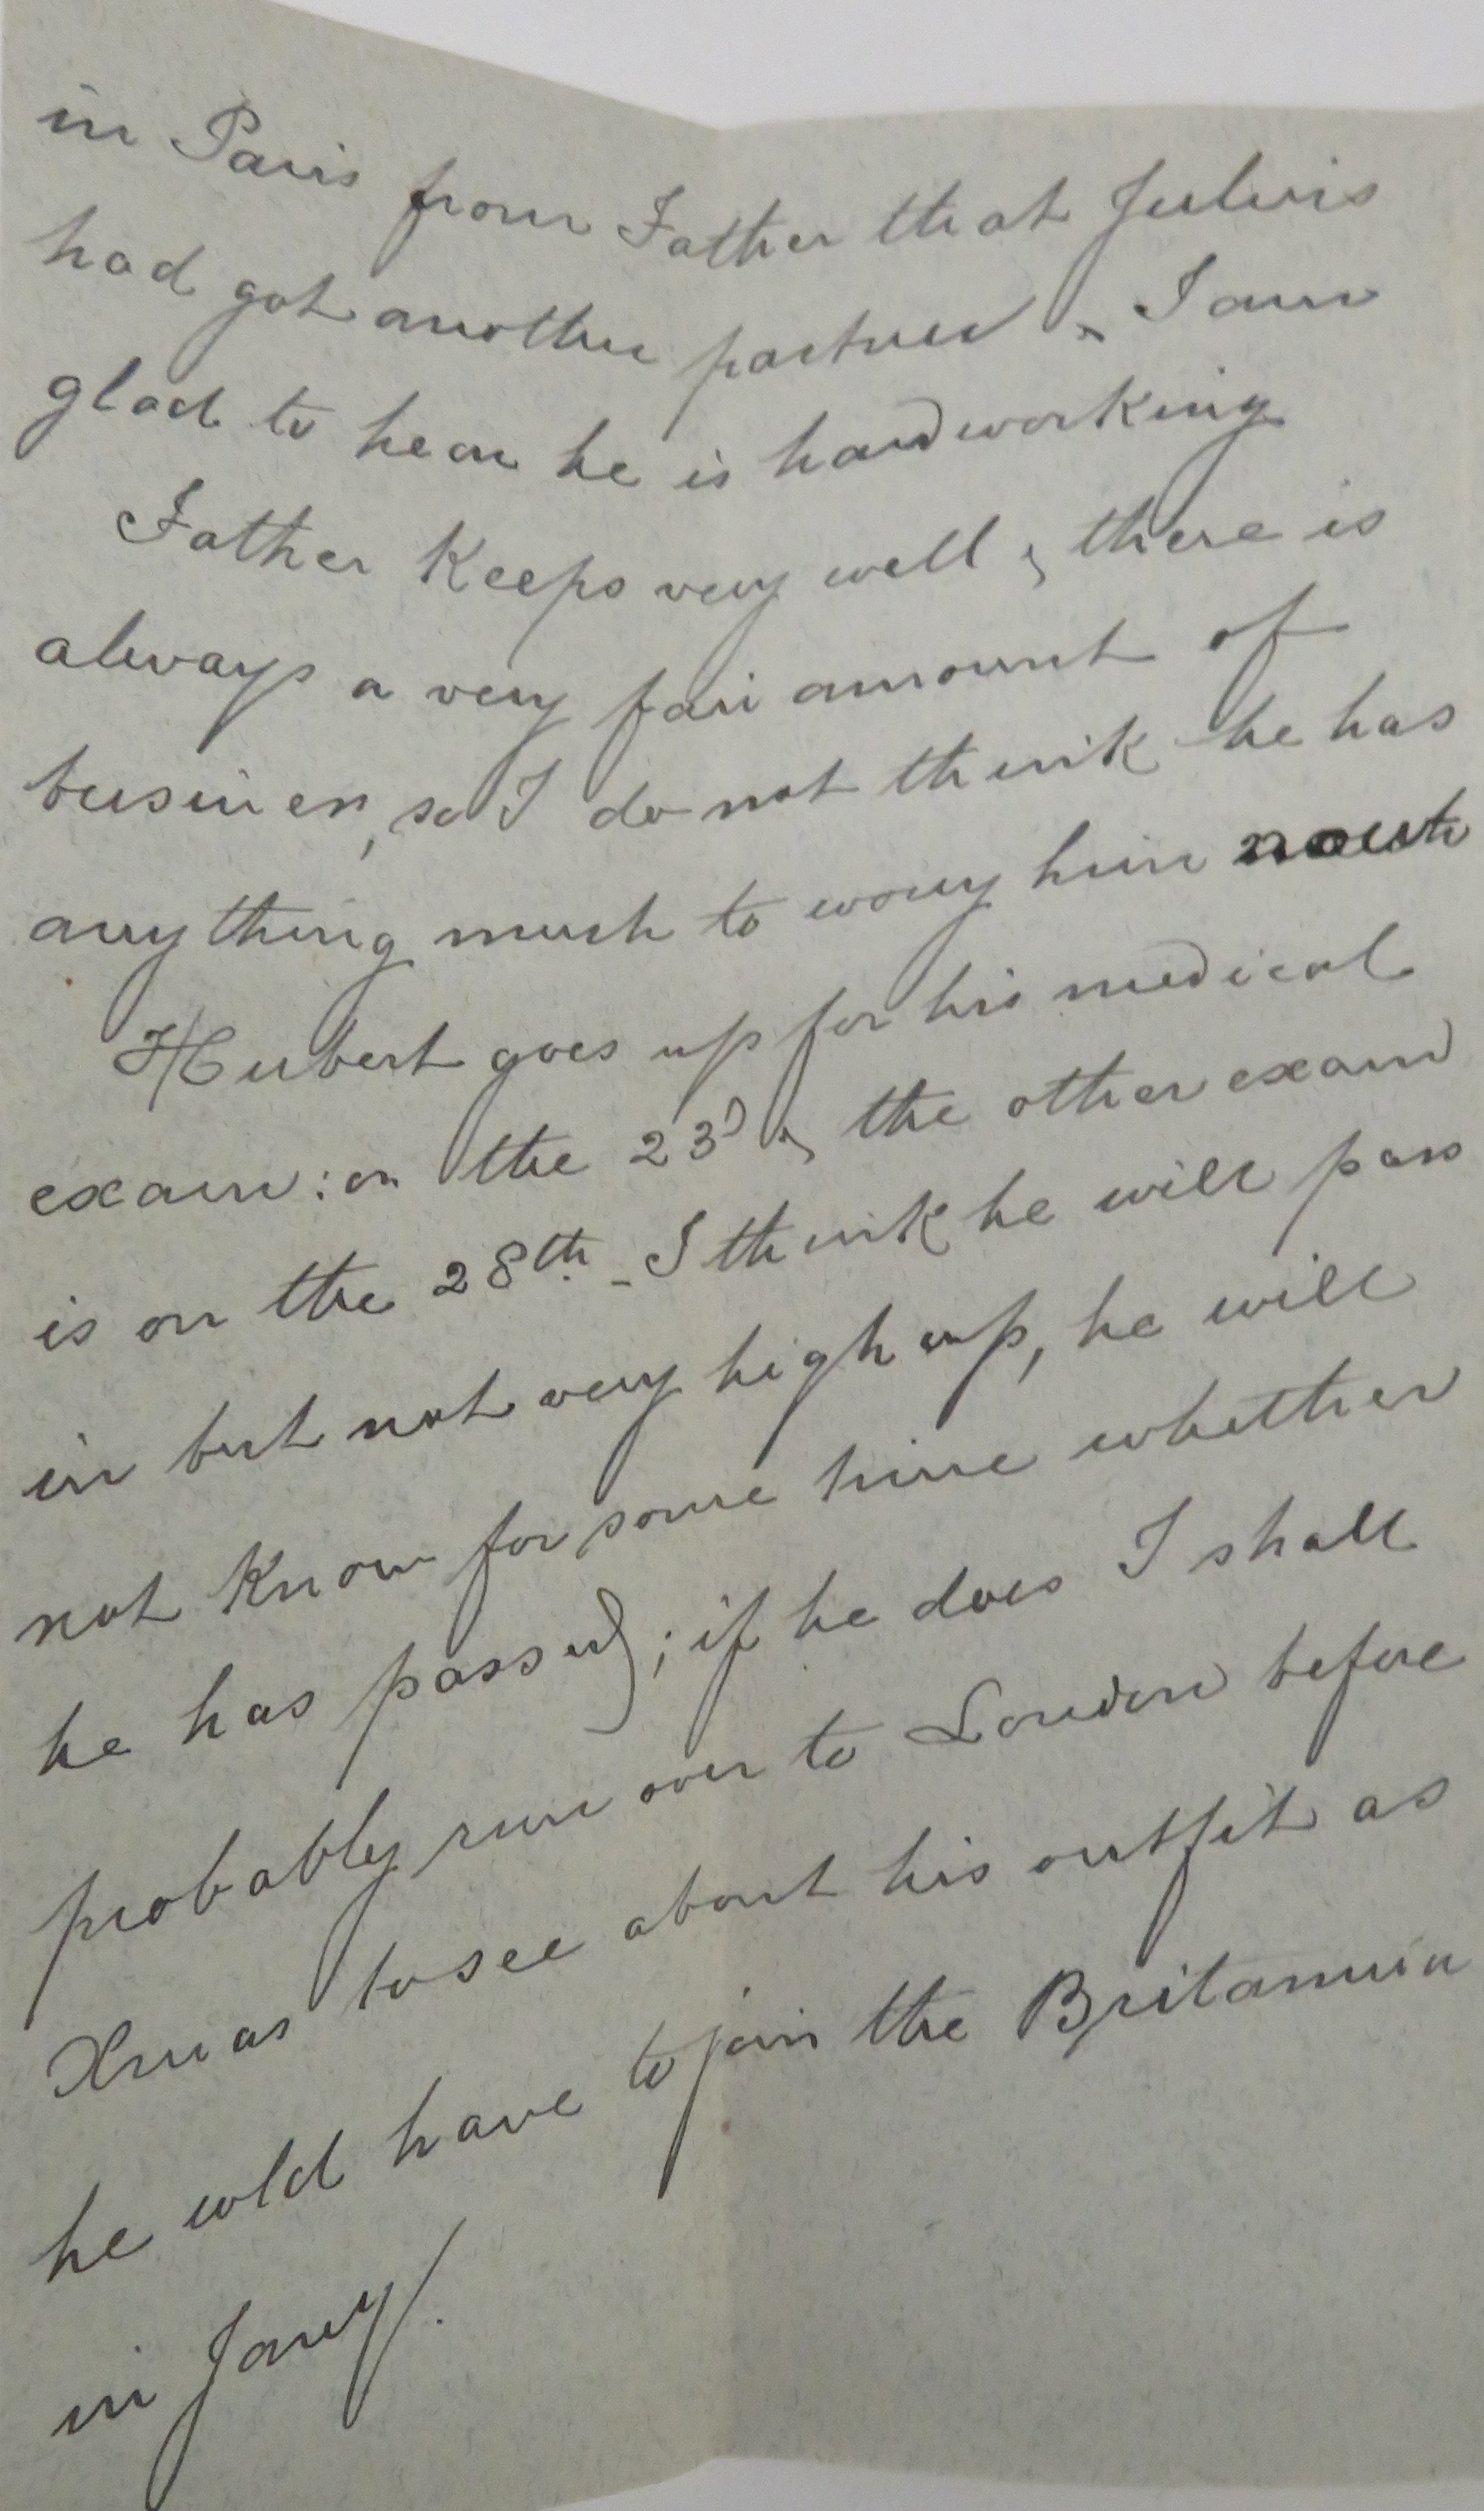 in Paris from Father that Julius
had got another partner & I am
glad to hear he is hardworking
Father Keeps very well & there is
always a very fair amount of
business, so I do not think he has
anything much to worry him
Hubert goes up for his medical
exam: on the 23d & the other exam
is on the 28th - I think he will pass
in but not very high up, he will
not Know for some time whether
he has passed; if he does I shall
probably run over to London before
Xmas to see about his outfit as
he wld have to join the Britannia
in Jany/.